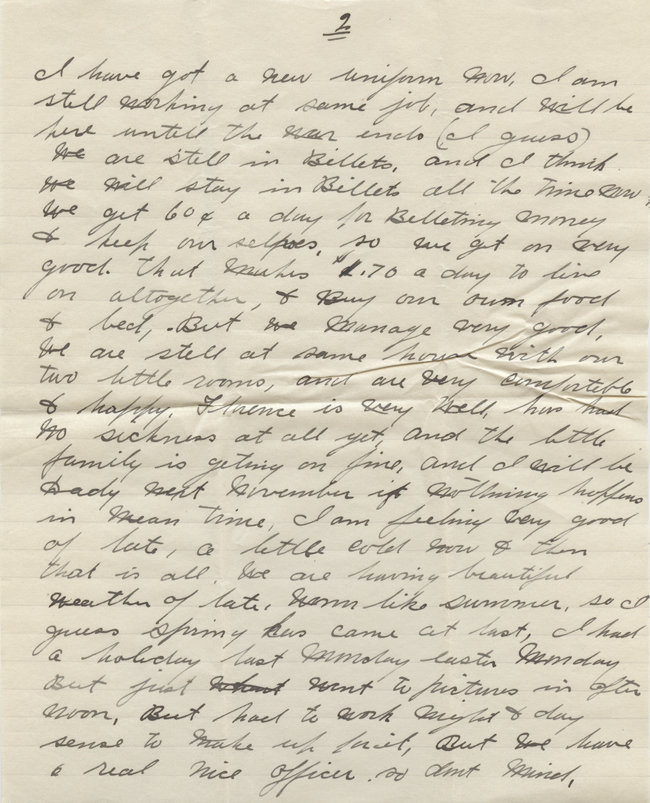 2
I have got a new uniform now, I am
still working at same job, and will be
here untill the war ends (I guess)
We are still in Billets, and I think
we will stay in Billets all the time now.
We get 60¢ a day for Billeting money
& keep our selves, so we get on very
good. That makes $1.70 a day to live
on altogether, & Buy our own food
& bed, But we manage very good,
We are still at same house with our
two little rooms, and are very comfortible
& happy. Florence is very well, has had
no sickness at all yet, and the little
family is geting on fine, and I will be
Dady next November if nothing happens
in mean time, I am feeling very good
of late, a little cold now & then
that is all. We are having beautiful
weather of late. Warm like summer, so I
guess Spring has came at last, I had
a holiday last Monday easter Monday
But just went to pictures in after
noon, But had to work night & day
sense to make up for it, But we have
a real nice officer so dont mind,